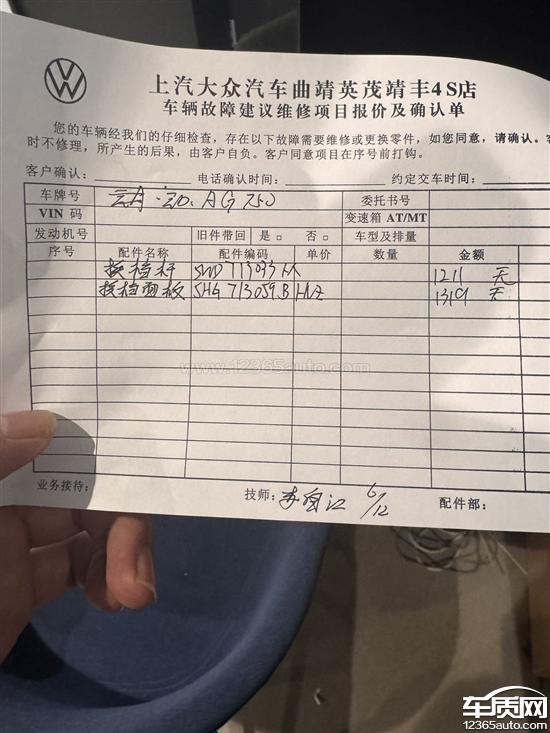 上汽大众汽车曲靖英茂靖丰4S店
车辆故障建议维修项目报价及确认单
您的车辆经我们的仔细检查，存在以下故障需要维修或更换零件，如您同意，请确认。客
时不修理，所产生的后果，由客户自负。客户同意项目在序号前打钩。
客户确认： 电话确认时间： 约定交车时间：
车牌号 云A 委托书号
VIN 码 变速箱 AT/MT
发动机号 旧件带回 是 □ 否 □ 车型及排量
序号 配件名称 配件编码 单价 数量 金额
换档杆 1211 无
换档面板 5HG 713059.B HNZ 1319 无
www.12365auto.com
业务接待： 技师： 6/12 配件部：
车质网
12365auto.com